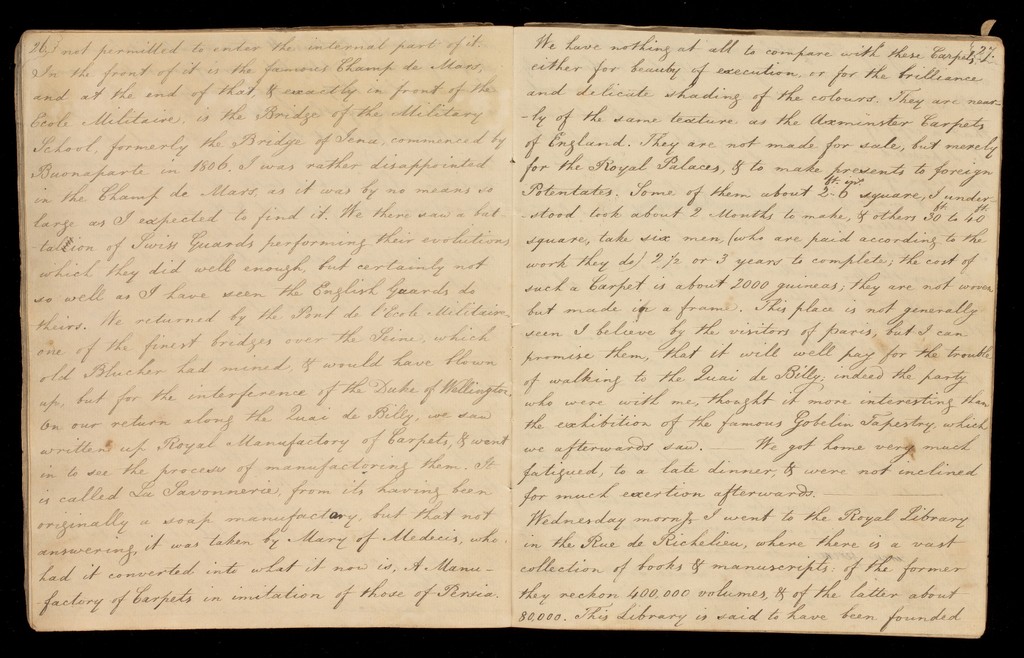 26) not permitted to enter the internal part of it.
In the front of it is the famous Champ de Mars,
and at the end of that, & exactly in front of the
Ecole Militaire, is the Bridge of the Military
School, formerly the Bridge of Jena, commenced by
Buonaparte in 1806. I was rather disappointed
in the Champ de Mars, as it was by no means so
large as I expected to find it. We there saw a bat-
-talion of Swiss Guards performing their evolutions
which they did well enough, but certainly not
so well as I have seen the English Guards do
theirs. We returned by the Pont de l'Ecole Militaire,
one of the finest bridges over the Seine, which
old Blucher had mined, & would have blown
up, but for the interference of the Duke of Wellington.
On our return along the Quai de Billy, we saw
written up Royal Manufactory of Carpets, & went
in to see the process of manufactoring them. It
is called La Savonnerie, from its having been
originally a soap manufactary, but that not
answering, it was taken by Mary of Medecis, who
had it converted into what it now is, A Manu-
-factory of Carpets in imitation of those of Persia.
(27
We have nothing at all to compare with these Carpets,
either for beauty of execution, or for the brilliance
and delicate shading of the colours. They are near-
-ly of the same texture as the Axminster Carpets
of England. They are not made for sale, but merely
for the Royal Palaces, & to make presents to foreign
Potentates. Some of them about 2-6 square, I under-
-stood took about 2 Months to make, & others 30 to 40
square, take six men, (who are paid according to the
work they do) 2½ or 3 years to complete; the cost of
such a Carpet is about 2000 guineas; they are not woven
but made in a frame. This place is not generally
seen I believe by the visitors of paris, but I can
promise them, that it will well pay for the trouble
of walking to the Quai de Billy; indeed the party
who were with me, thought it more interesting than
the exhibition of the famous Gobelin Tapestry, which
we afterwards saw. — We got home very much
fatigued, to a late dinner, & were not inclined
for much exertion afterwards. —
Wednesday morng. I went to the Royal Library
in the Rue de Richelieu, where there is a vast
collection of books & manuscripts: of the former
they reckon 400,000 volumes, & of the latter about
80,000. This Library is said to have been founded